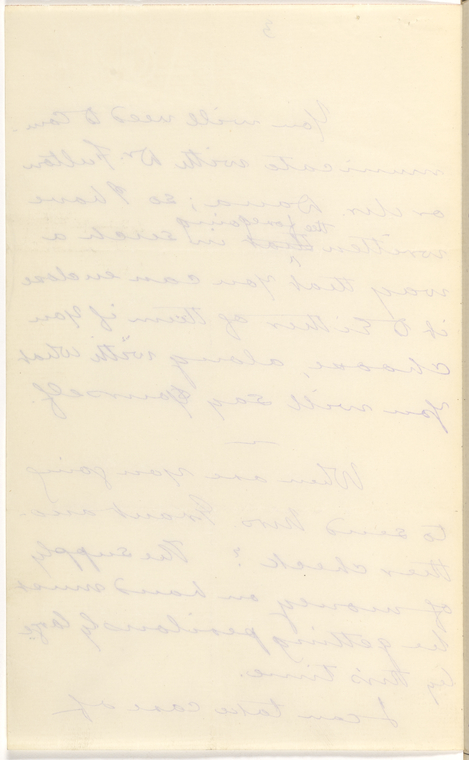 3
You will need to com-
municate with Dr. Fulton
or Mr. Dana; so I have
the foregoing
written that in such a
way that you can enclose
it to either of them if you
choose, along with what
you will say yourself.
When are you going
to send Mrs. Grant ano-
ther check? The supply
of money on hand must
be getting perilously large
by this time.
I can take care of